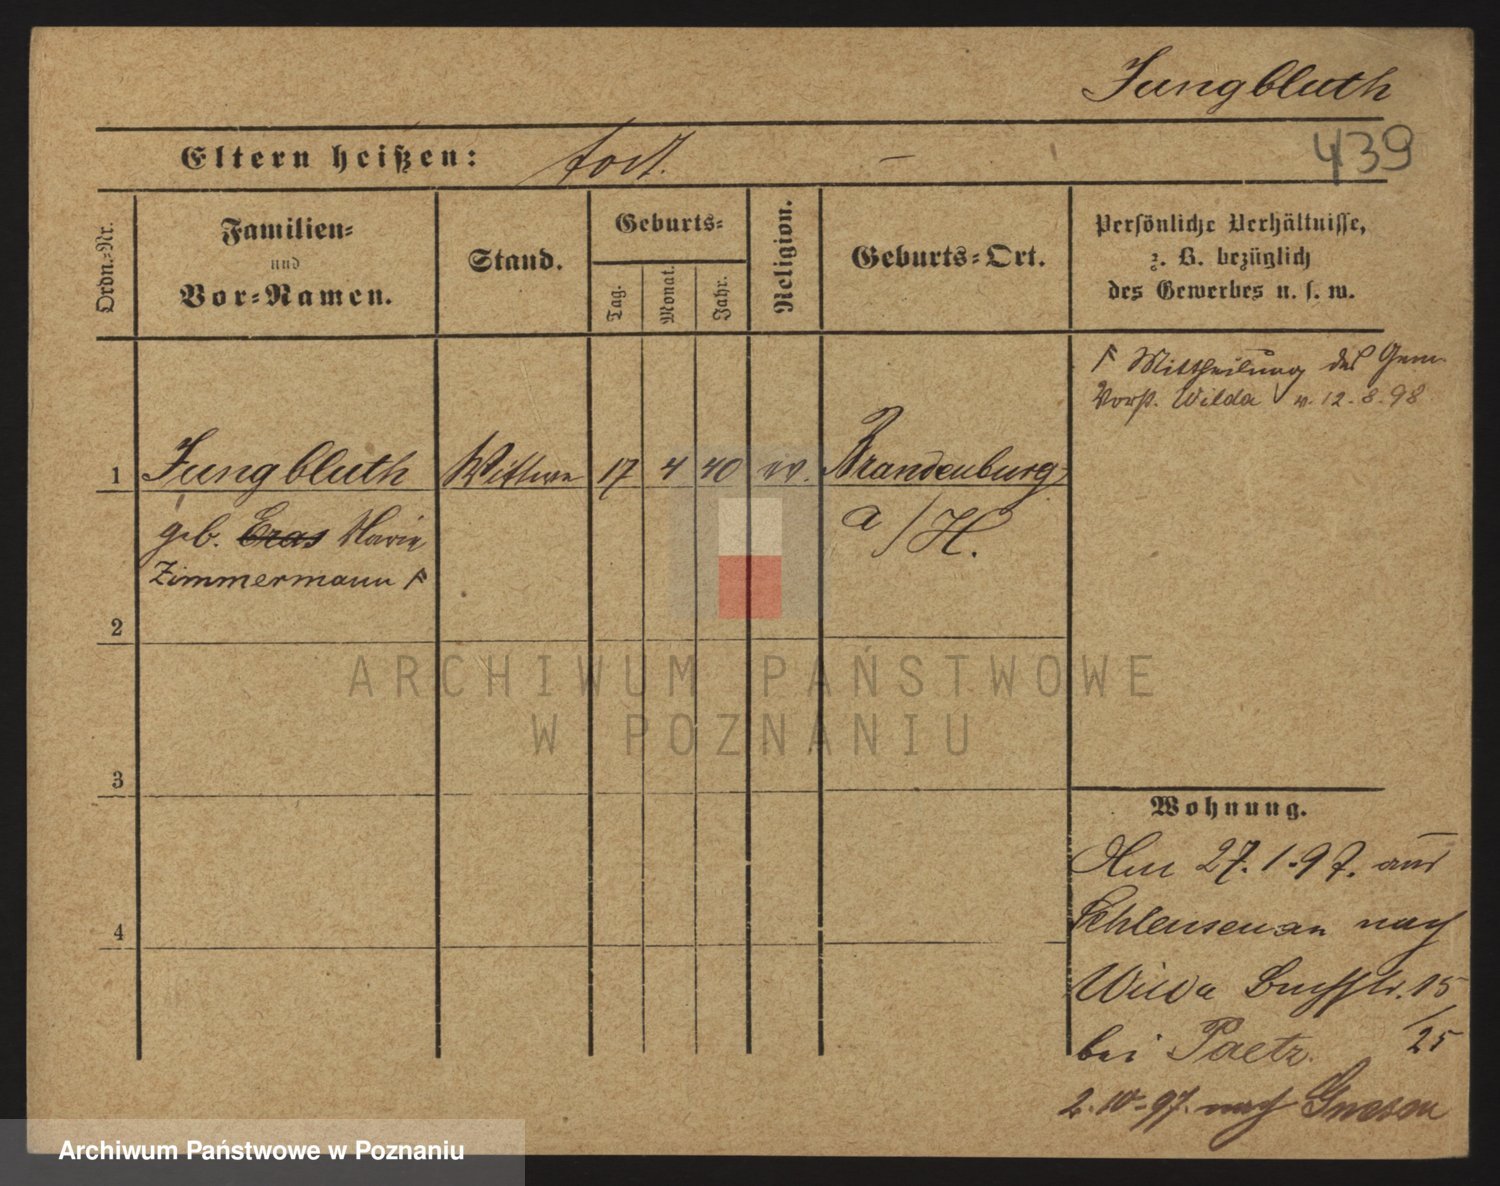 Jungbluth
439
Eltern heißen: tot. –
Ordn.-Nr.
Familien-
und
Vor-Namen.
Stand.
Geburts-
Tag.
Monat.
Jahr.
Religion.
Geburts-Ort.
Persönliche Verhältnisse,
z. B. bezüglich
des Gewerbes u. s. w.
Mittheilung des Gem.
Vorst. Wilda v. 12.8.98
1 Jungbluth Wittwe 17 4 40 ev. Brandenburg
geb. Eras Marie
a/H.
Zimmermann
2
3
4
Wohnung.
Am 27.1.97. aus
Schleusenau nach
Wilda 15
/25
bei Paetz.
2.10.97. nach Gnesen
ARCHIWUM PAŃSTWOWE
W POZNANIU
Archiwum Państwowe w Poznaniu